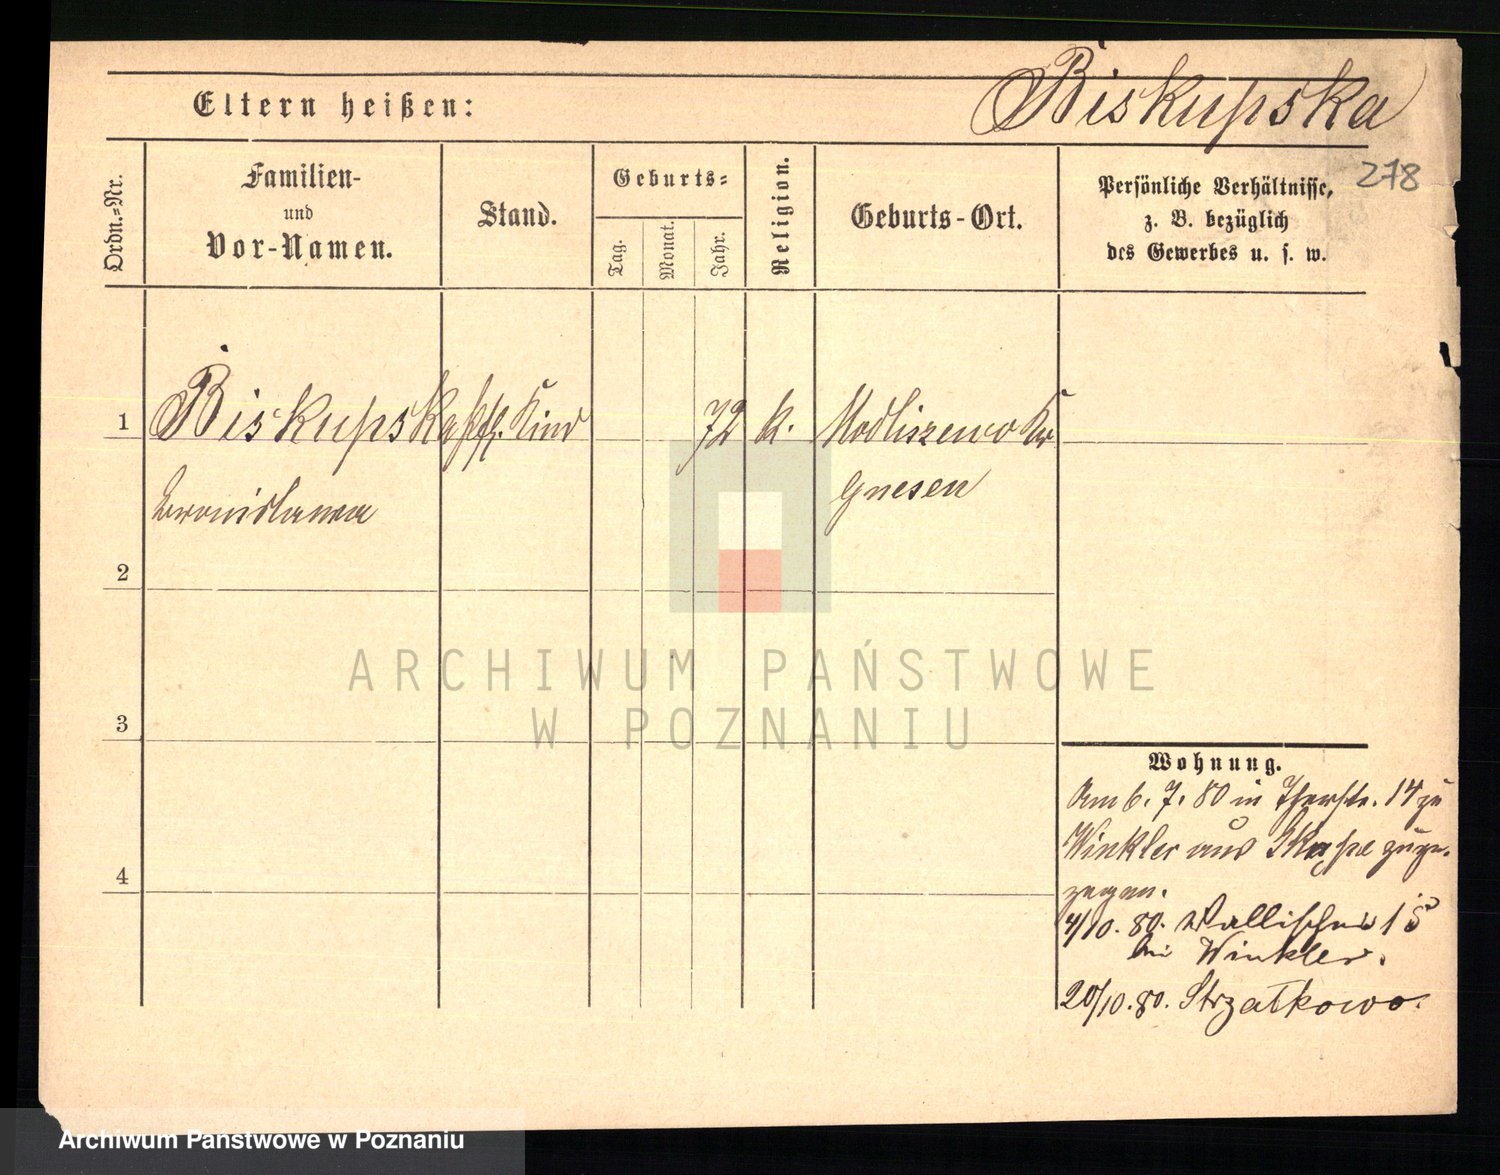 Biskupska
Eltern heißen:
278
Ordn.=Nr.
Familien-
und
Vor-Namen.
Stand.
Geburts=
Tag.
Monat.
Jahr.
Religion.
Geburts-Ort.
Persönliche Verhältnisse,
z. B. bezüglich
des Gewerbes u. s. w.
1
Biskupska Kind
72 k. Modliszewo Kr
Bronislawa
Gnesen
2
ARCHIWUM PAŃSTWOWE
W POZNANIU
3
Wohnung.
Am 6. 7. 80 in 14 zu
Winkler aus zuge-
zogen.
4
4/10. 80. Wallischei
bei Winkler.
20/10. 80. Strzałkowo.
Archiwum Państwowe w Poznaniu